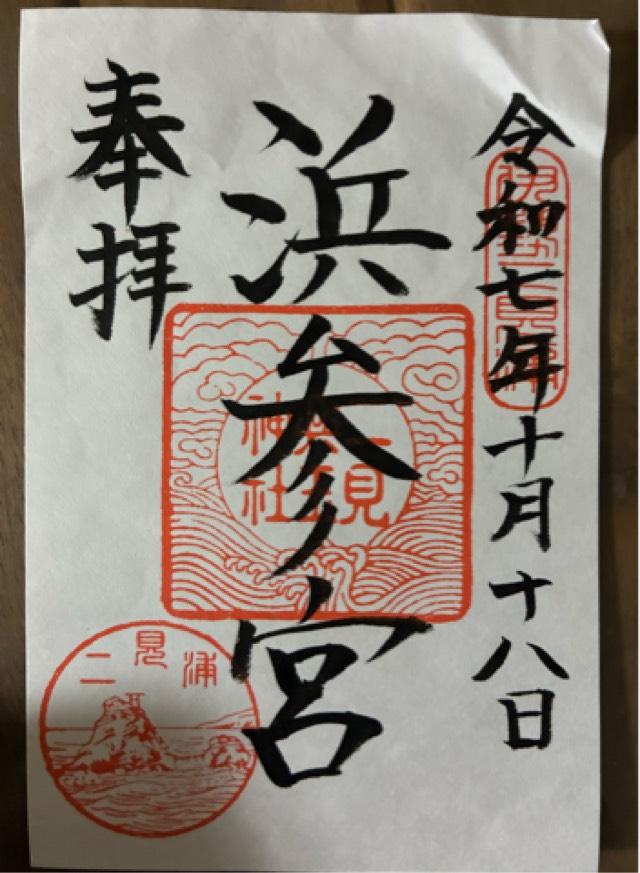 令和七年十月十八日
伊勢二見浦
浜参宮
二見興玉神社
奉拝
二見浦